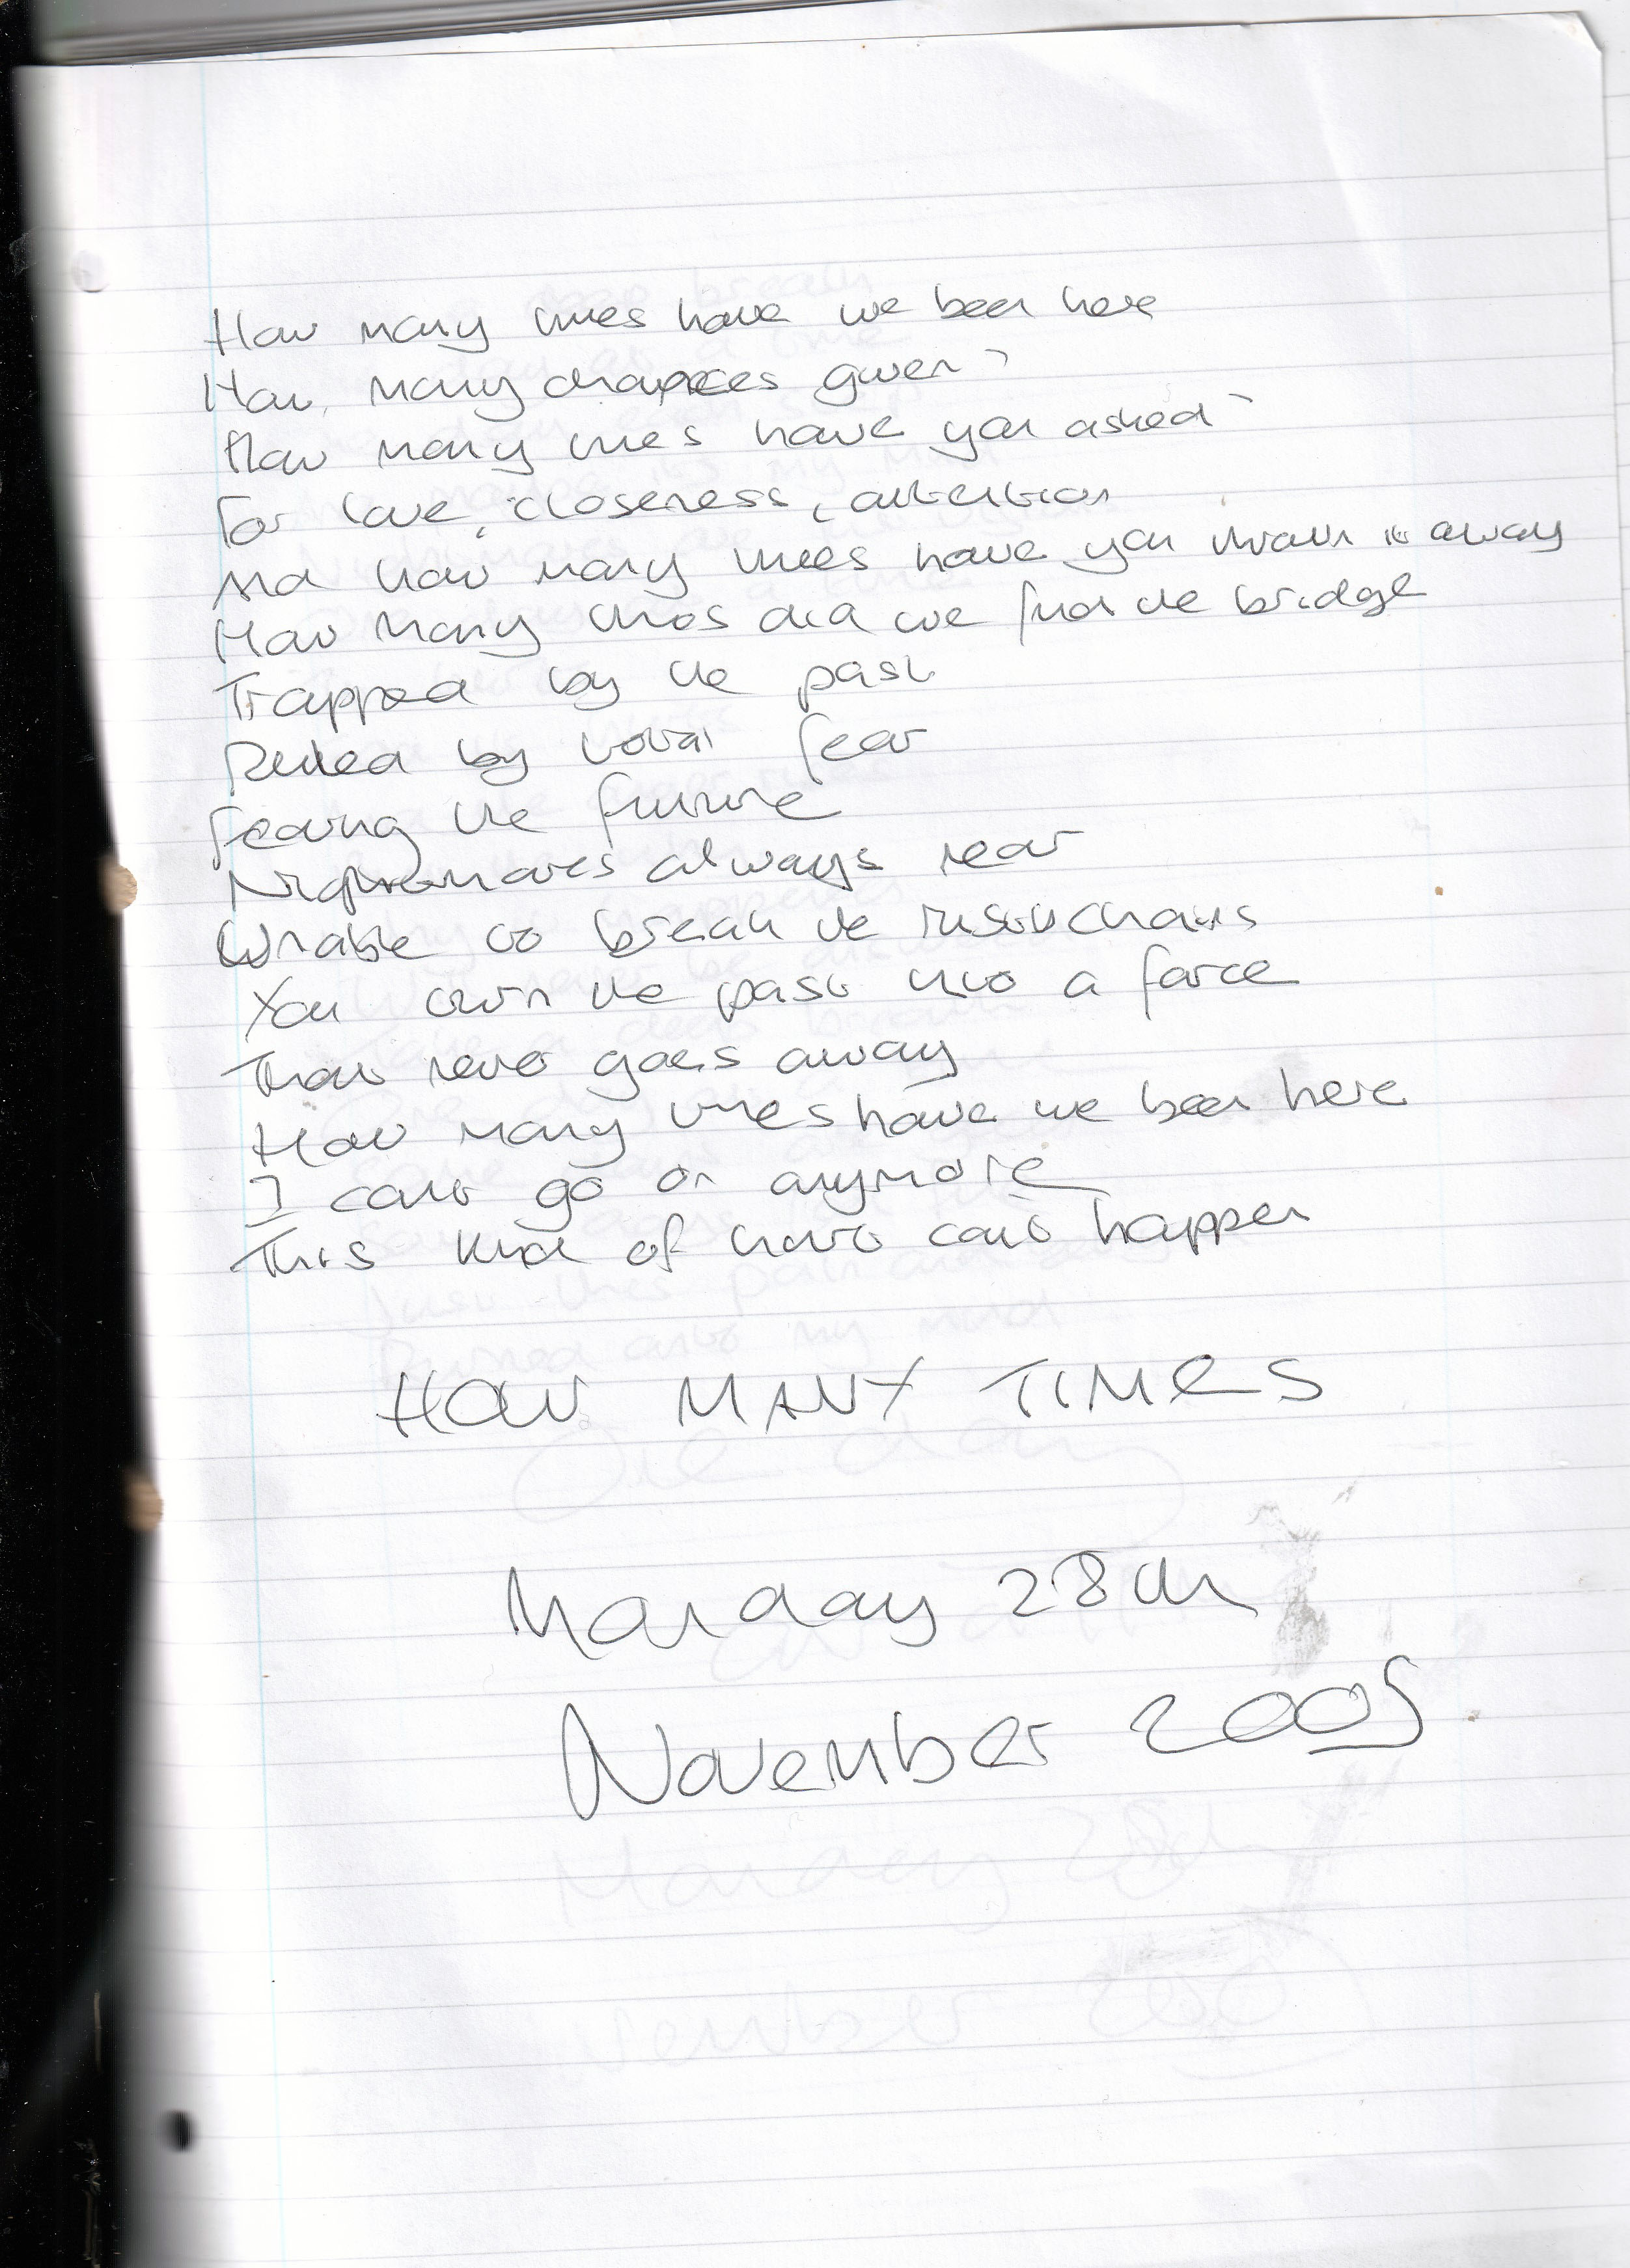 How many times have we been here
How many chances given?
How many times have you asked
For love, closeness, attention
And how many times have you thrown it away
How many times did we find the bridge
Trapped by the past
Ruled by total fear
Fearing the future
Nightmares always near
Unable to break the chains
You turn the past into a force
That never goes away
How many times have we been here
I can't go on anymore
This kind of hurt can't happen
HOW MANY TIMES
Monday 28th
November 2005